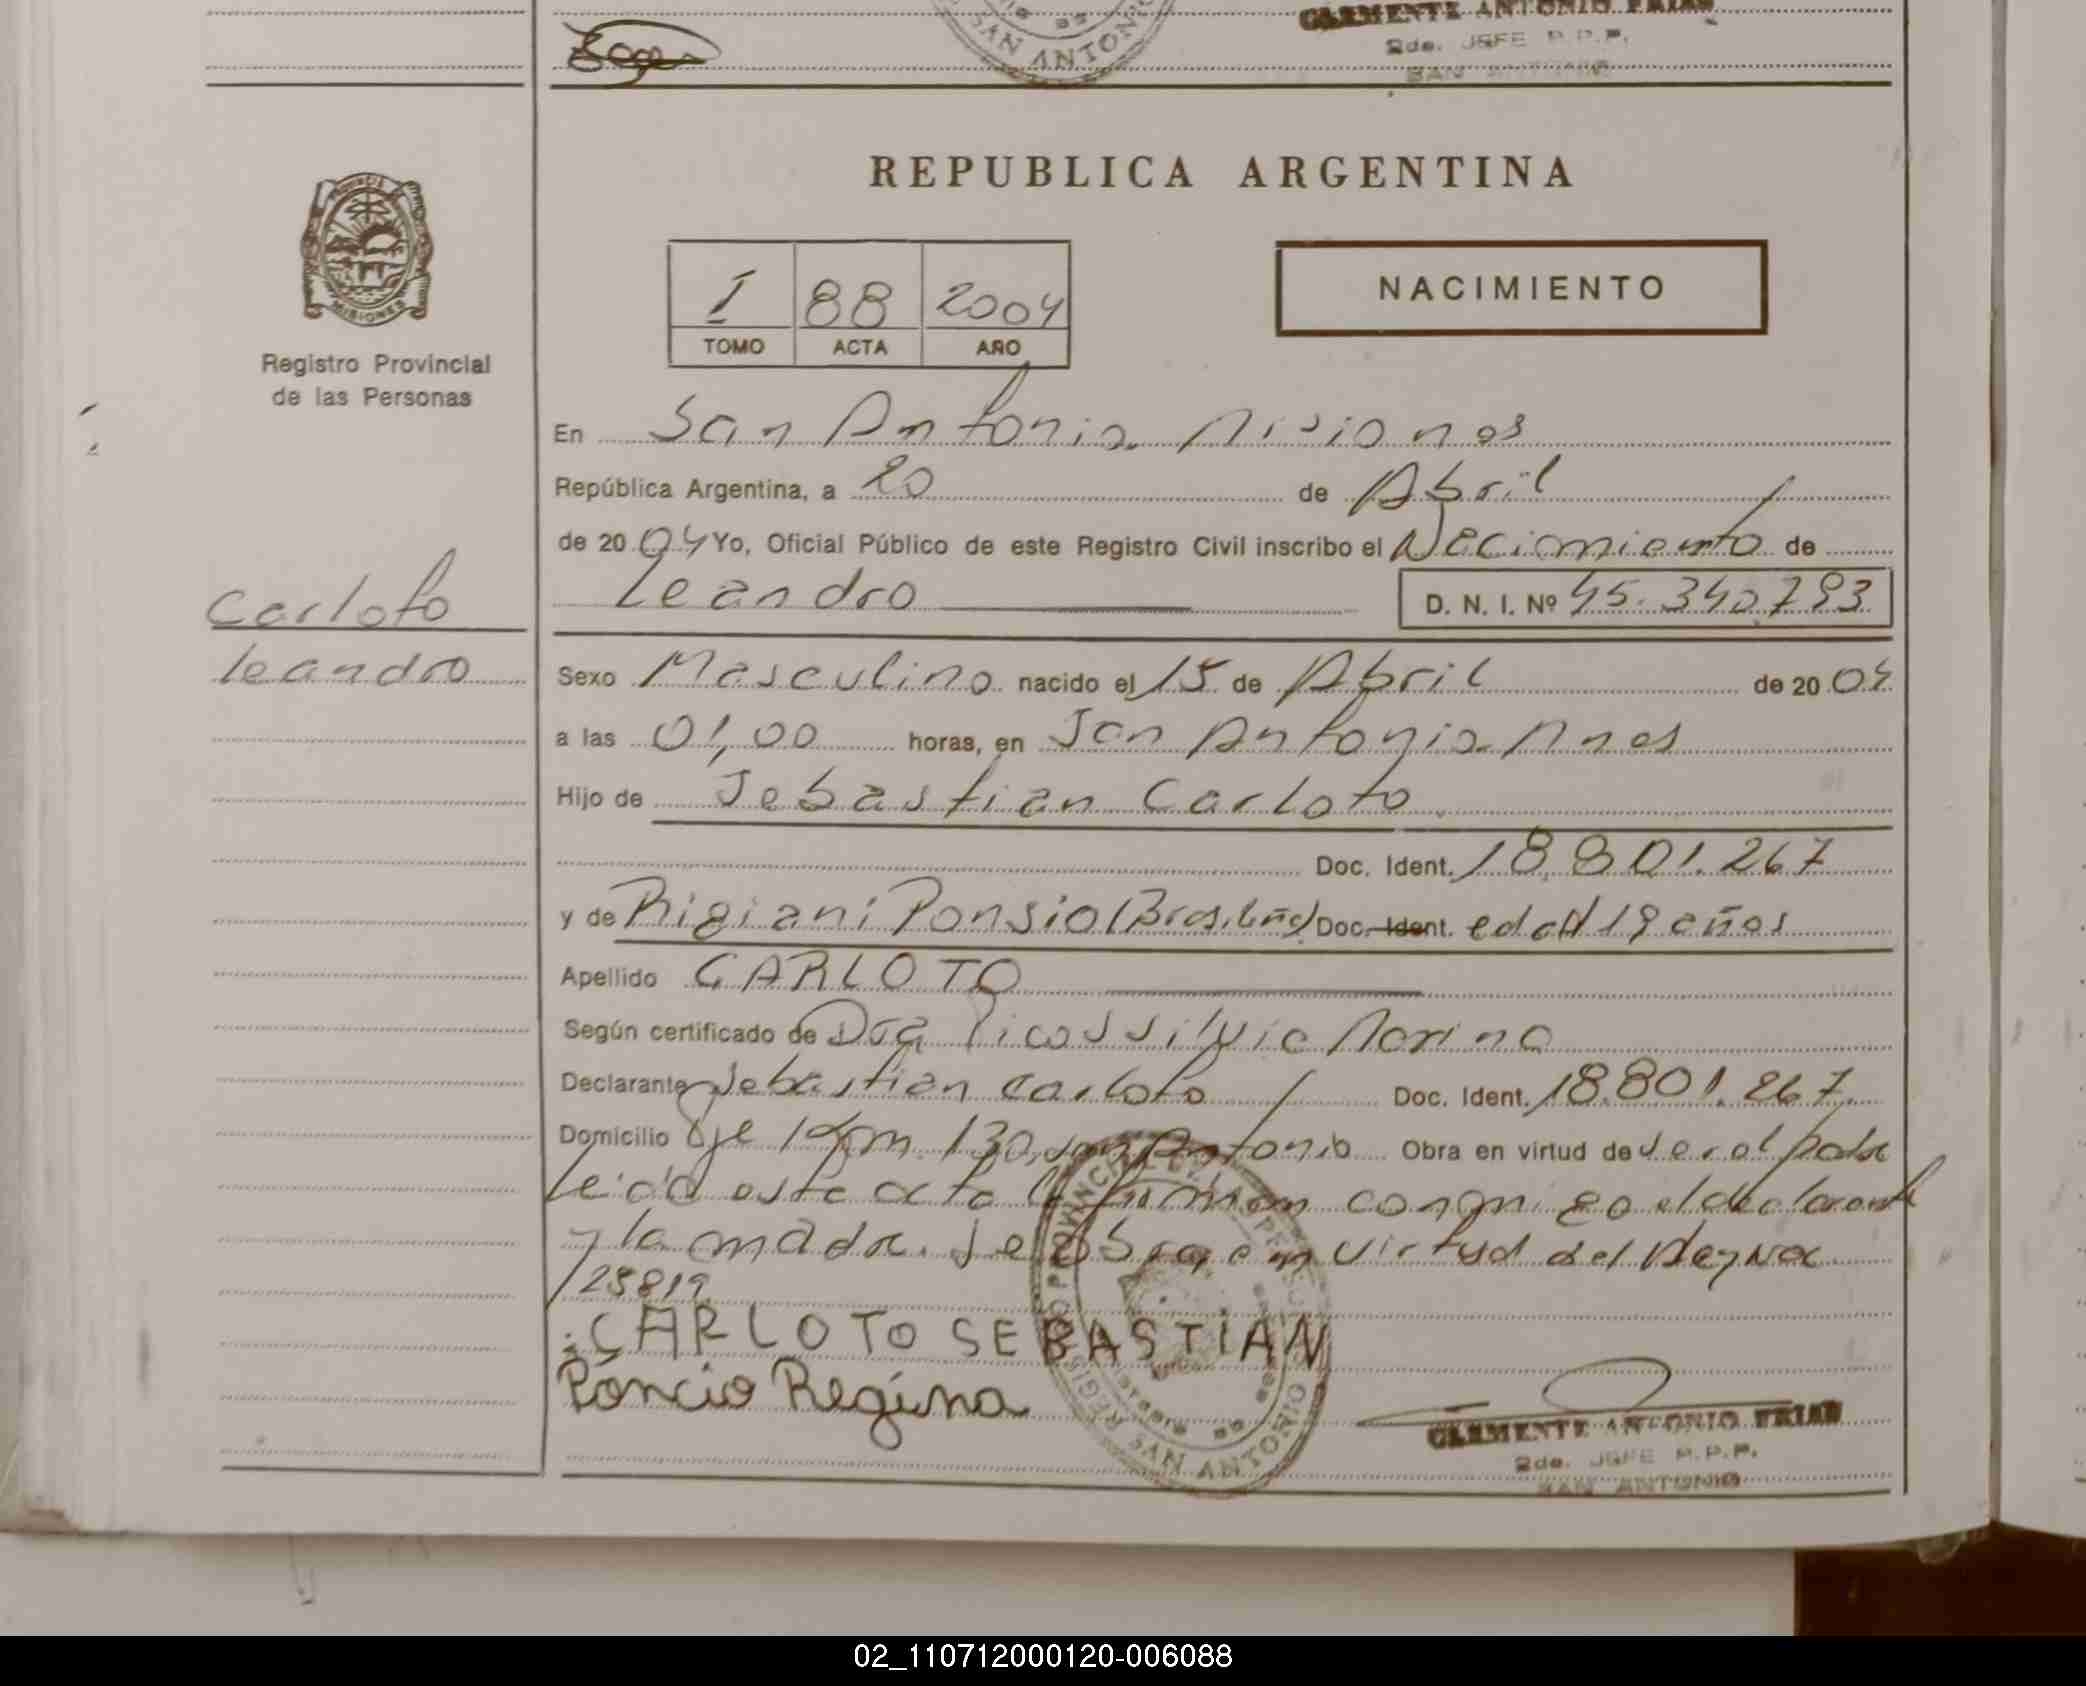 CLEMENTE ANTONIO FRIAS
2do. JEFE R.P.P.
SAN ANTONIO
SAN ANTONIO
REPUBLICA ARGENTINA
MISIONES
Registro Provincial
de las Personas
1 88 2004
TOMO ACTA AÑO
NACIMIENTO
En San Antonio Misiones
República Argentina, a 20 de Abril
de 2004 Yo, Oficial Público de este Registro Civil inscribo el Nacimiento de
Leandro D. N. I. Nº 45.340.793
Carloto
Leandro
Sexo Masculino nacido el 15 de Abril de 2004
a las 01,00 horas, en San Antonio Mnes
Hijo de Sebastian Carloto
Doc. Ident. 18.801.267
y de Rigiani Ponsio (Brasileña) Doc. Ident. edad 19 años
Apellido CARLOTO
Según certificado de Dra Picos Silvia Marina
Declarante Sebastian Carloto Doc. Ident. 18.801.267
Domicilio Km. 130, San Antonio Obra en virtud de ser el padre
Leida esta acta la firman conmigo el declarante
y la madre. Se obra en virtud del
/25819
CARLOTO SEBASTIAN
Poncio Regina
SAN ANTONIO
CLEMENTE ANTONIO FRIAS
2do. JEFE R.P.P.
SAN ANTONIO
02_110712000120-006088